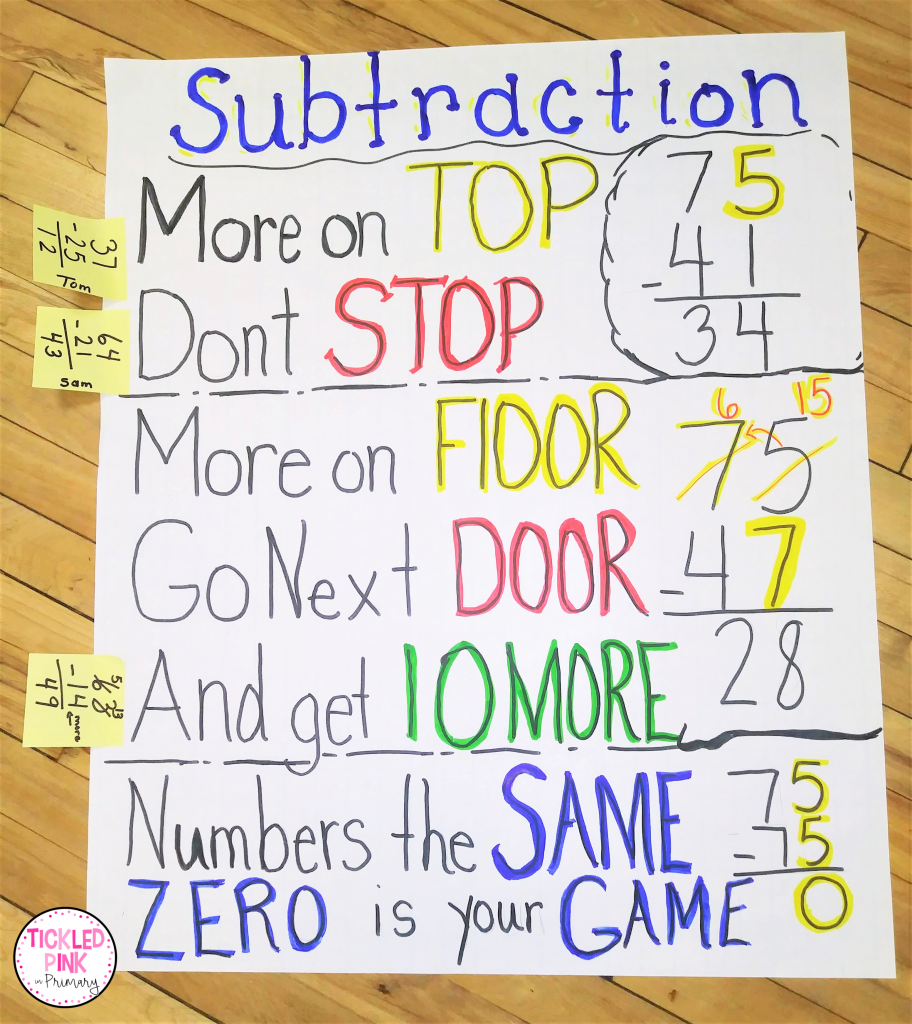 Subtraction
More on TOP
Dont STOP
75
-41
34
37
-25
12
Tom
64
-21
43
Sam
More on FlOOR
Go Next DOOR
And get 10 MORE
6 15
75
-47
28
5 13
63
-14 ← more
49
Numbers the SAME
ZERO is your GAME
75
-75
0
TICKLED
PINK
in Primary